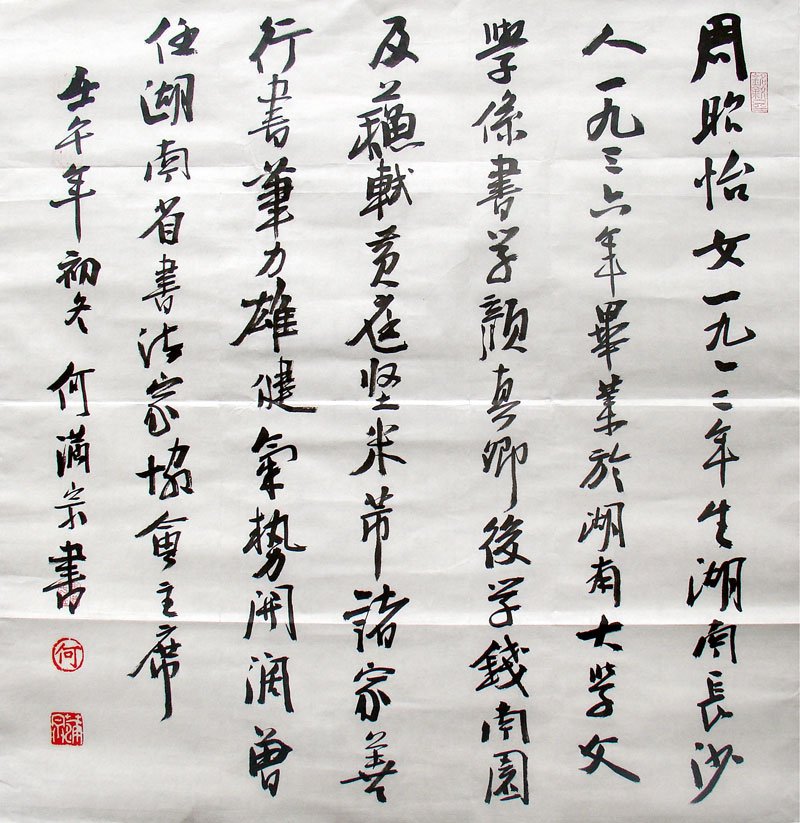 周昭怡女一九一二年生湖南長沙
人一九三六年畢業於湖南大學文
學係書学顏真卿後学錢南園
及蘇軾黄庭坚米芾諸家善
行書筆力雄健氣勢開阔曾
任湖南省書法家協會主席
壬午年初冬何满宗書
何